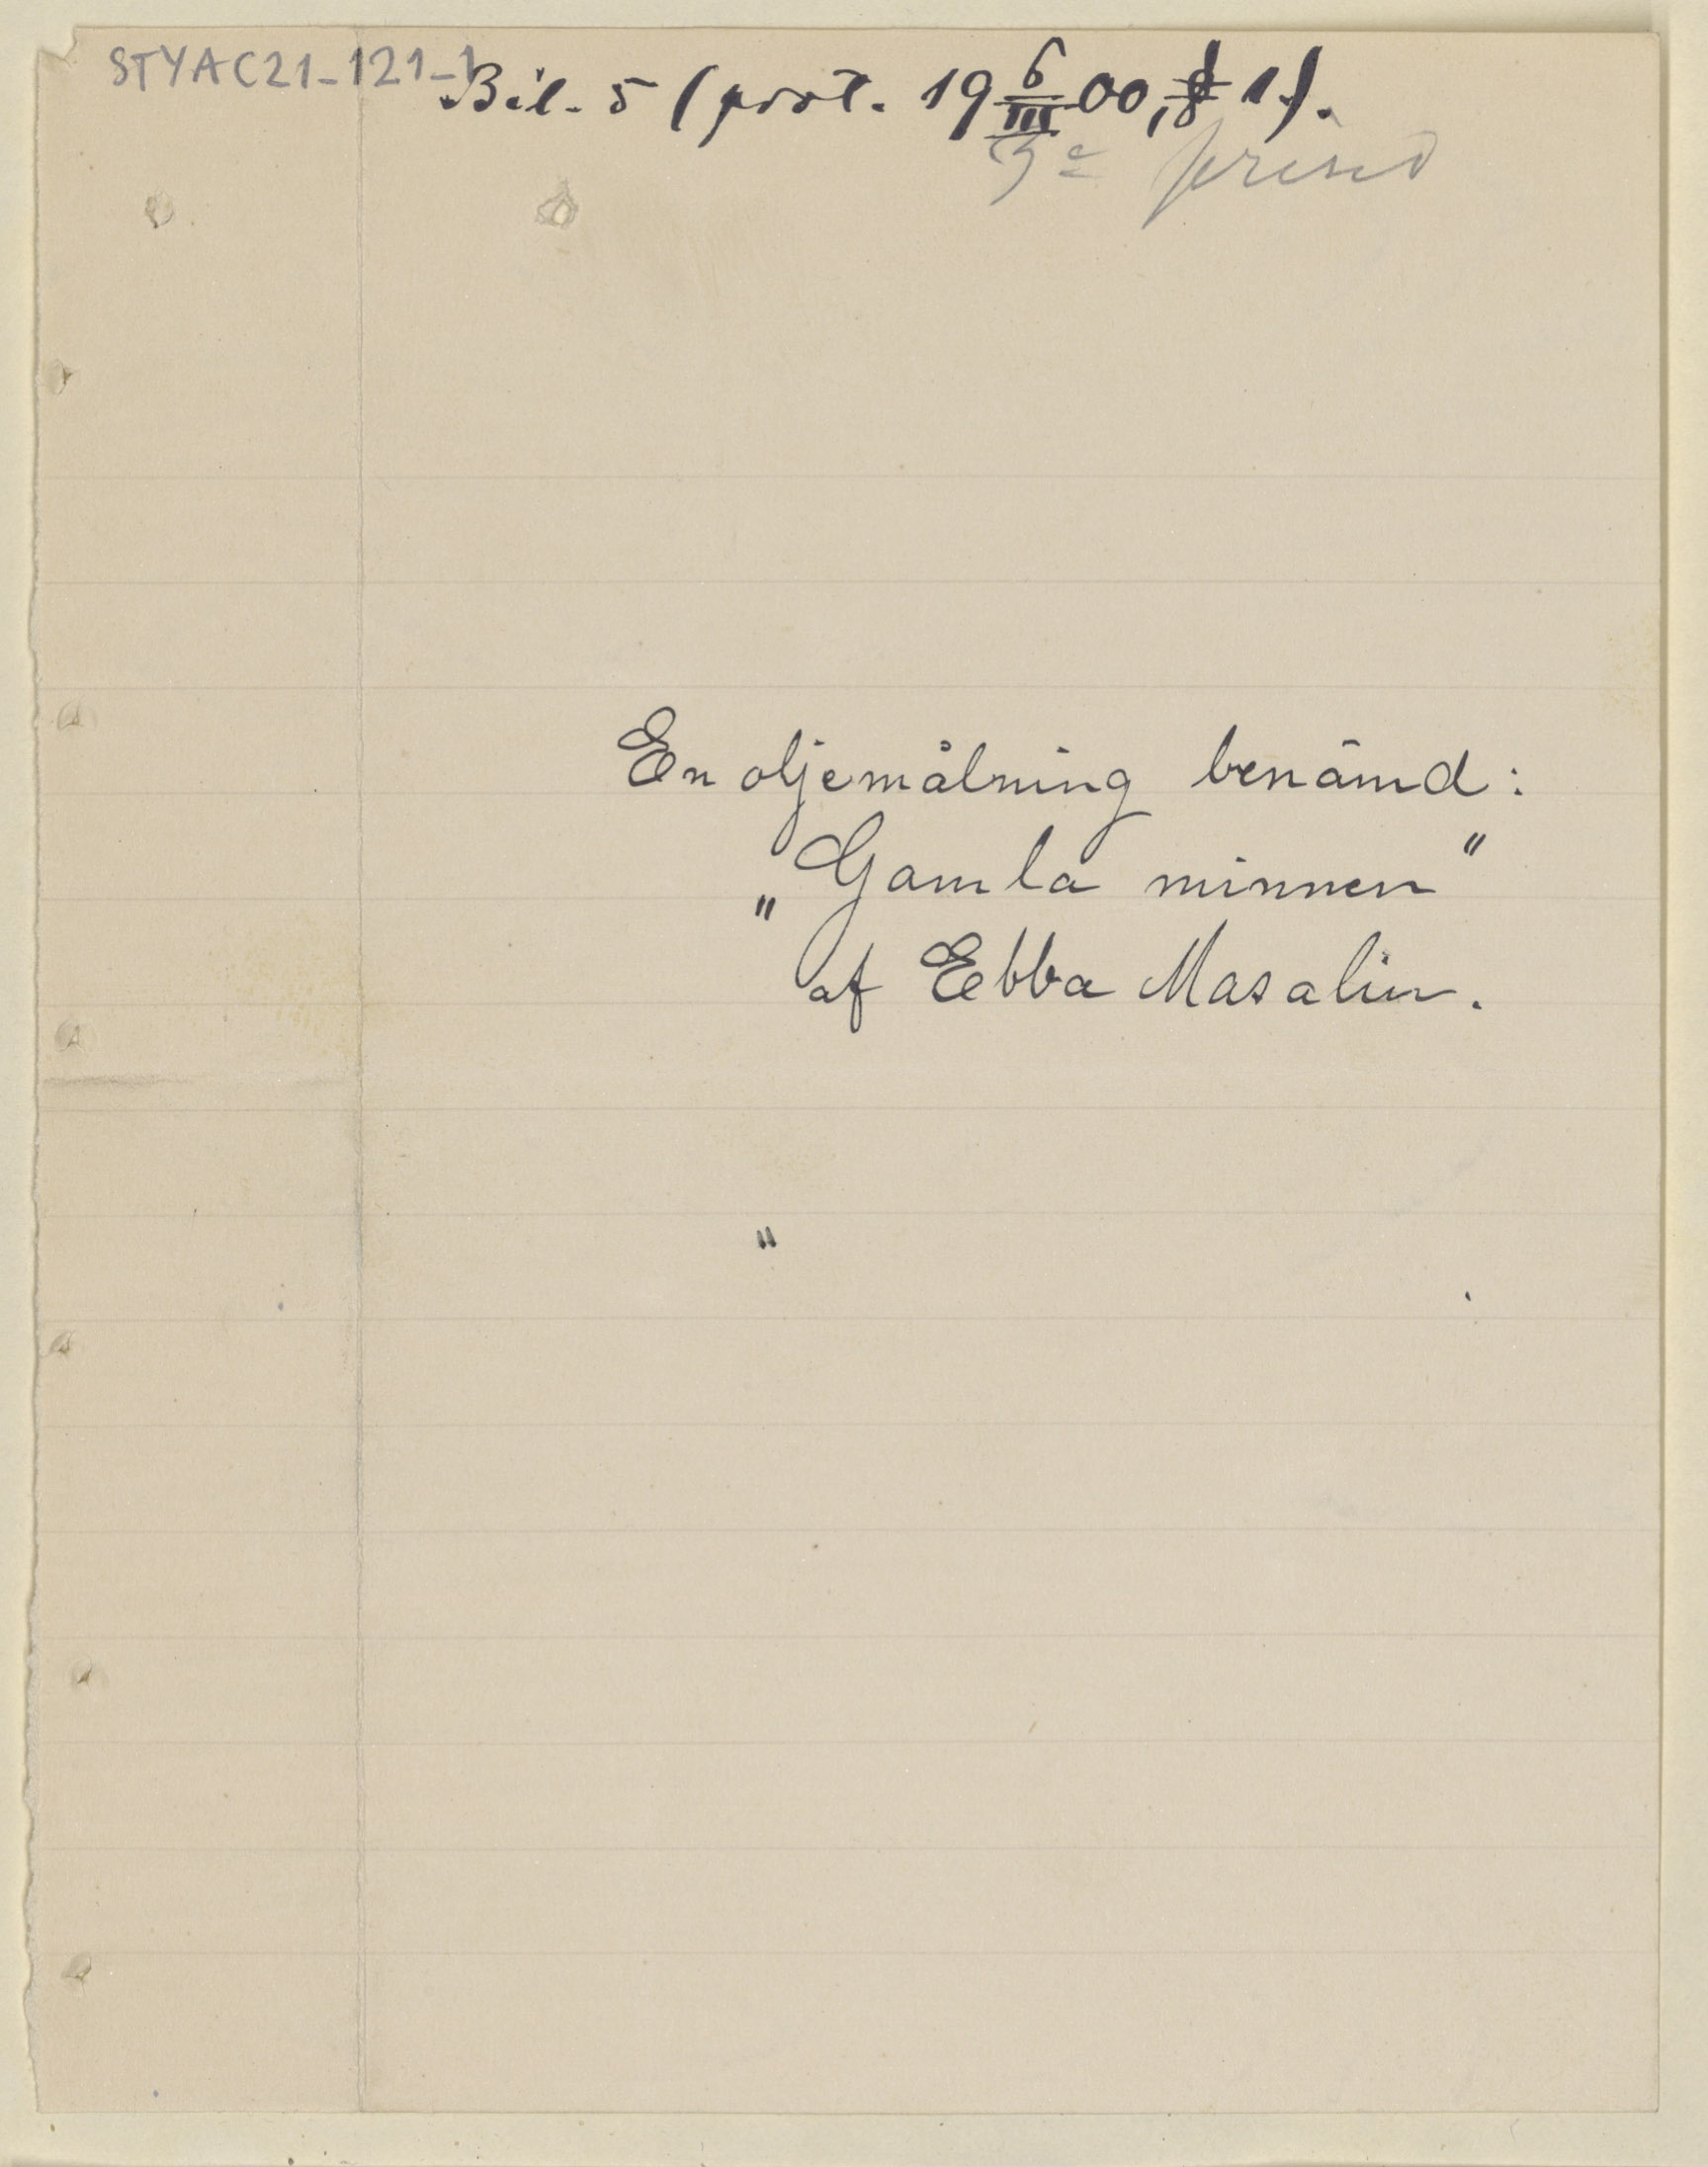 STYAC21-121-1
Bil. 5 (prot. 19 6/III 00, § 1).
3e priset
En oljemålning benämd:
„Gamla minnen"
af Ebba Masalin.
"